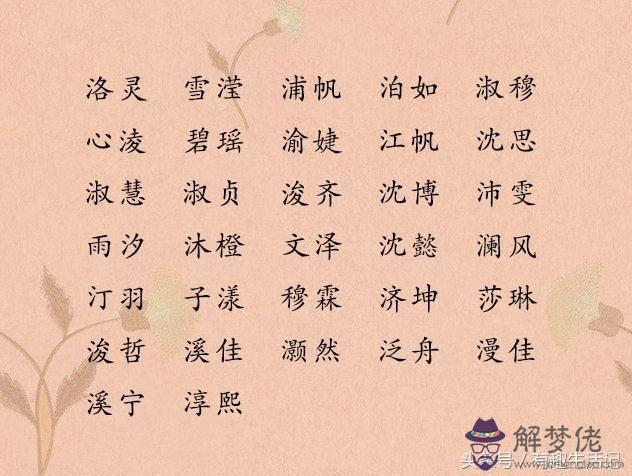 洛灵 雪滢 浦帆 泊如 淑穆
心淩 碧瑶 渝婕 江帆 沈思
淑慧 淑贞 浚齐 沈博 沛雯
雨汐 沐橙 文泽 沈懿 澜风
汀羽 子漾 穆霖 济坤 莎琳
浚哲 溪佳 灏然 泛舟 漫佳
溪宁 淳熙
解梦佬
头条号／有趣生活记